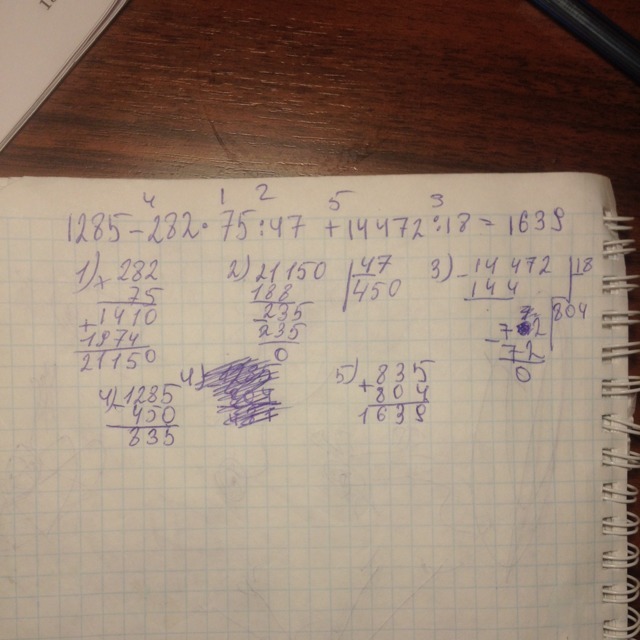 4 1 2 5 3
1285-282·75:47+14472:18=1639
1) × 282 2) 21150 | 47 3) -14472 | 18
75 188 450 144 804
+1410 235 72
1974 235 -72
21150 0 0
4) -1285 4) 5) +835
450 804
835 1639